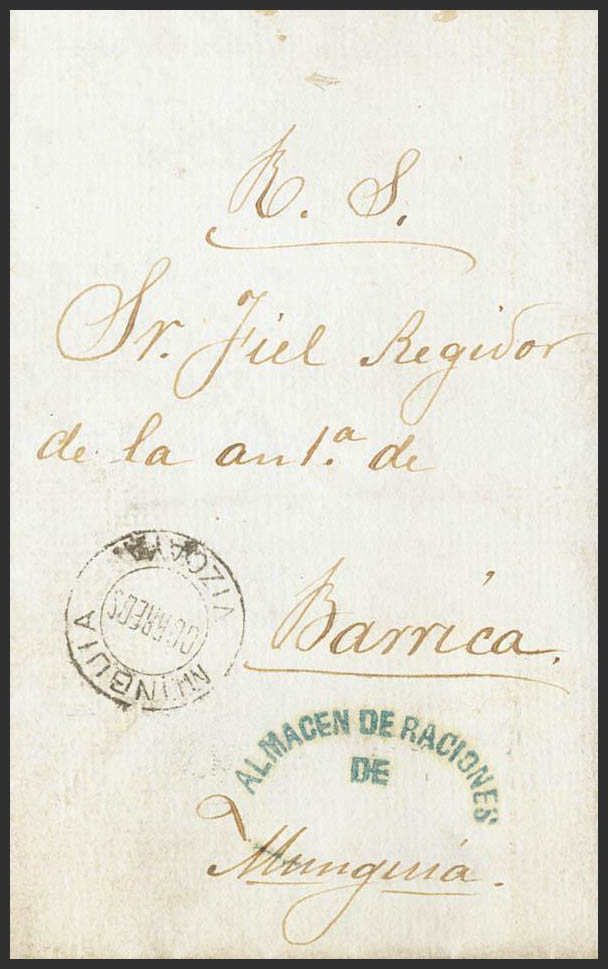 R. S.
Sr. Fiel Regidor
de la an1.ª de
Barrica.
VIZCAYA
CORREOS
MUNGUIA
ALMACEN DE RACIONES
DE
Munguia.